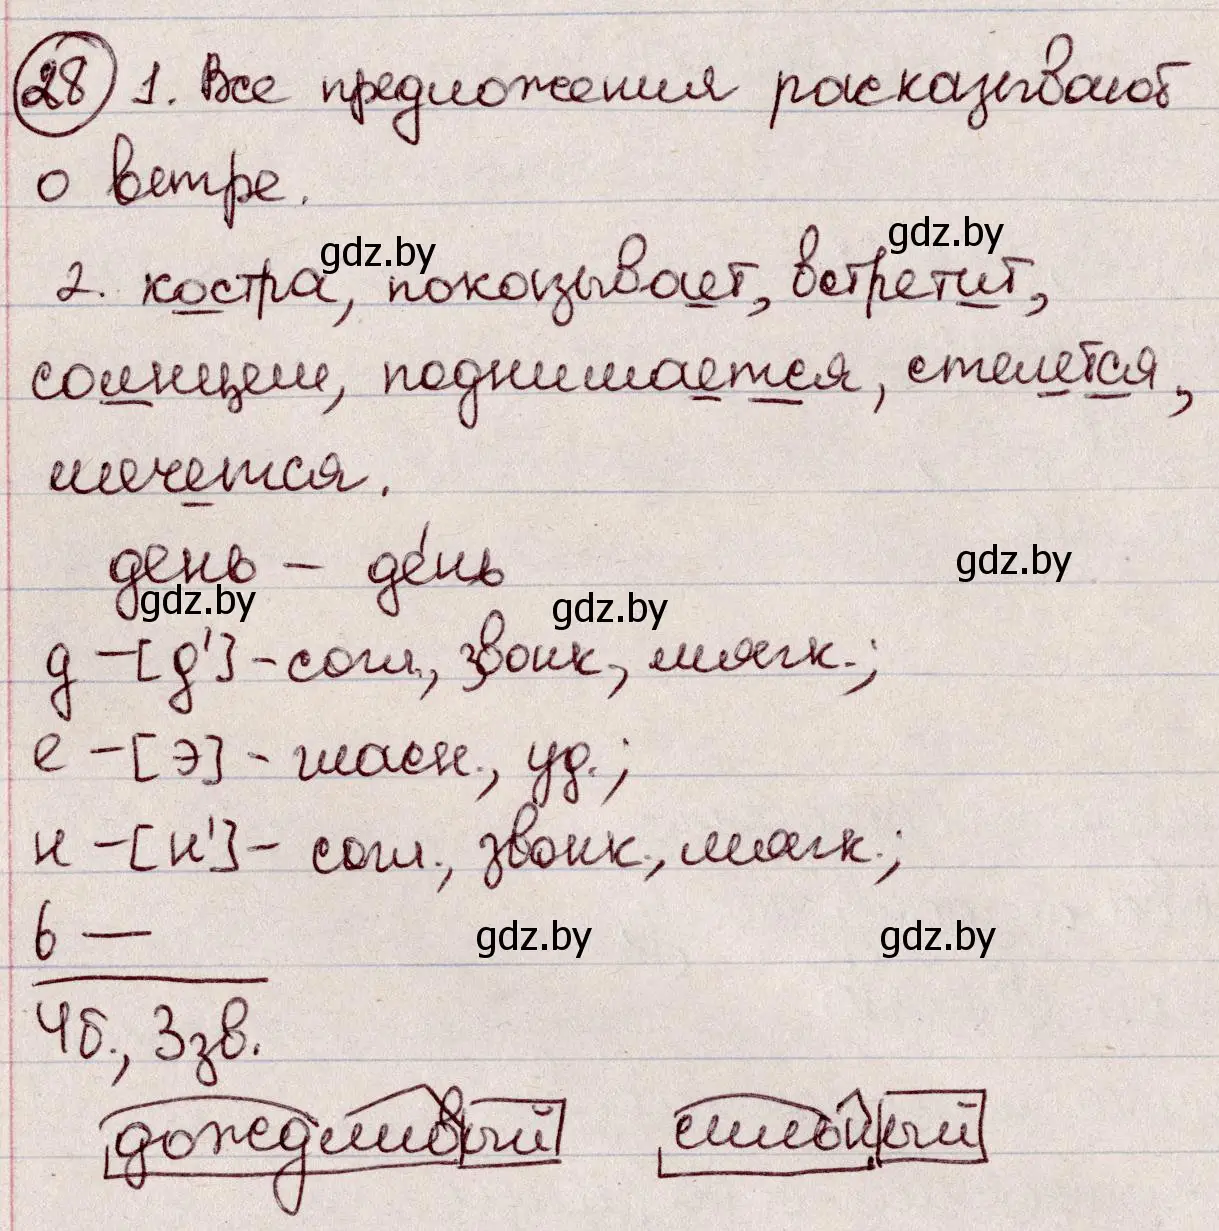 28 1. Все предложения расказывают
о ветре.
gdz.by gdz.by
2. костра, показывает, встретит,
солнцем, поднимается, стелется,
мечется.
день – де́нь gdz.by
gdz.by gdz.by
д – [д'] – согл., звонк., мягк.;
е – [э] – гласн., уд.;
н – [н'] – согл., звонк., мягк.;
ь — gdz.by gdz.by
4б., 3зв.
дождливый сильный